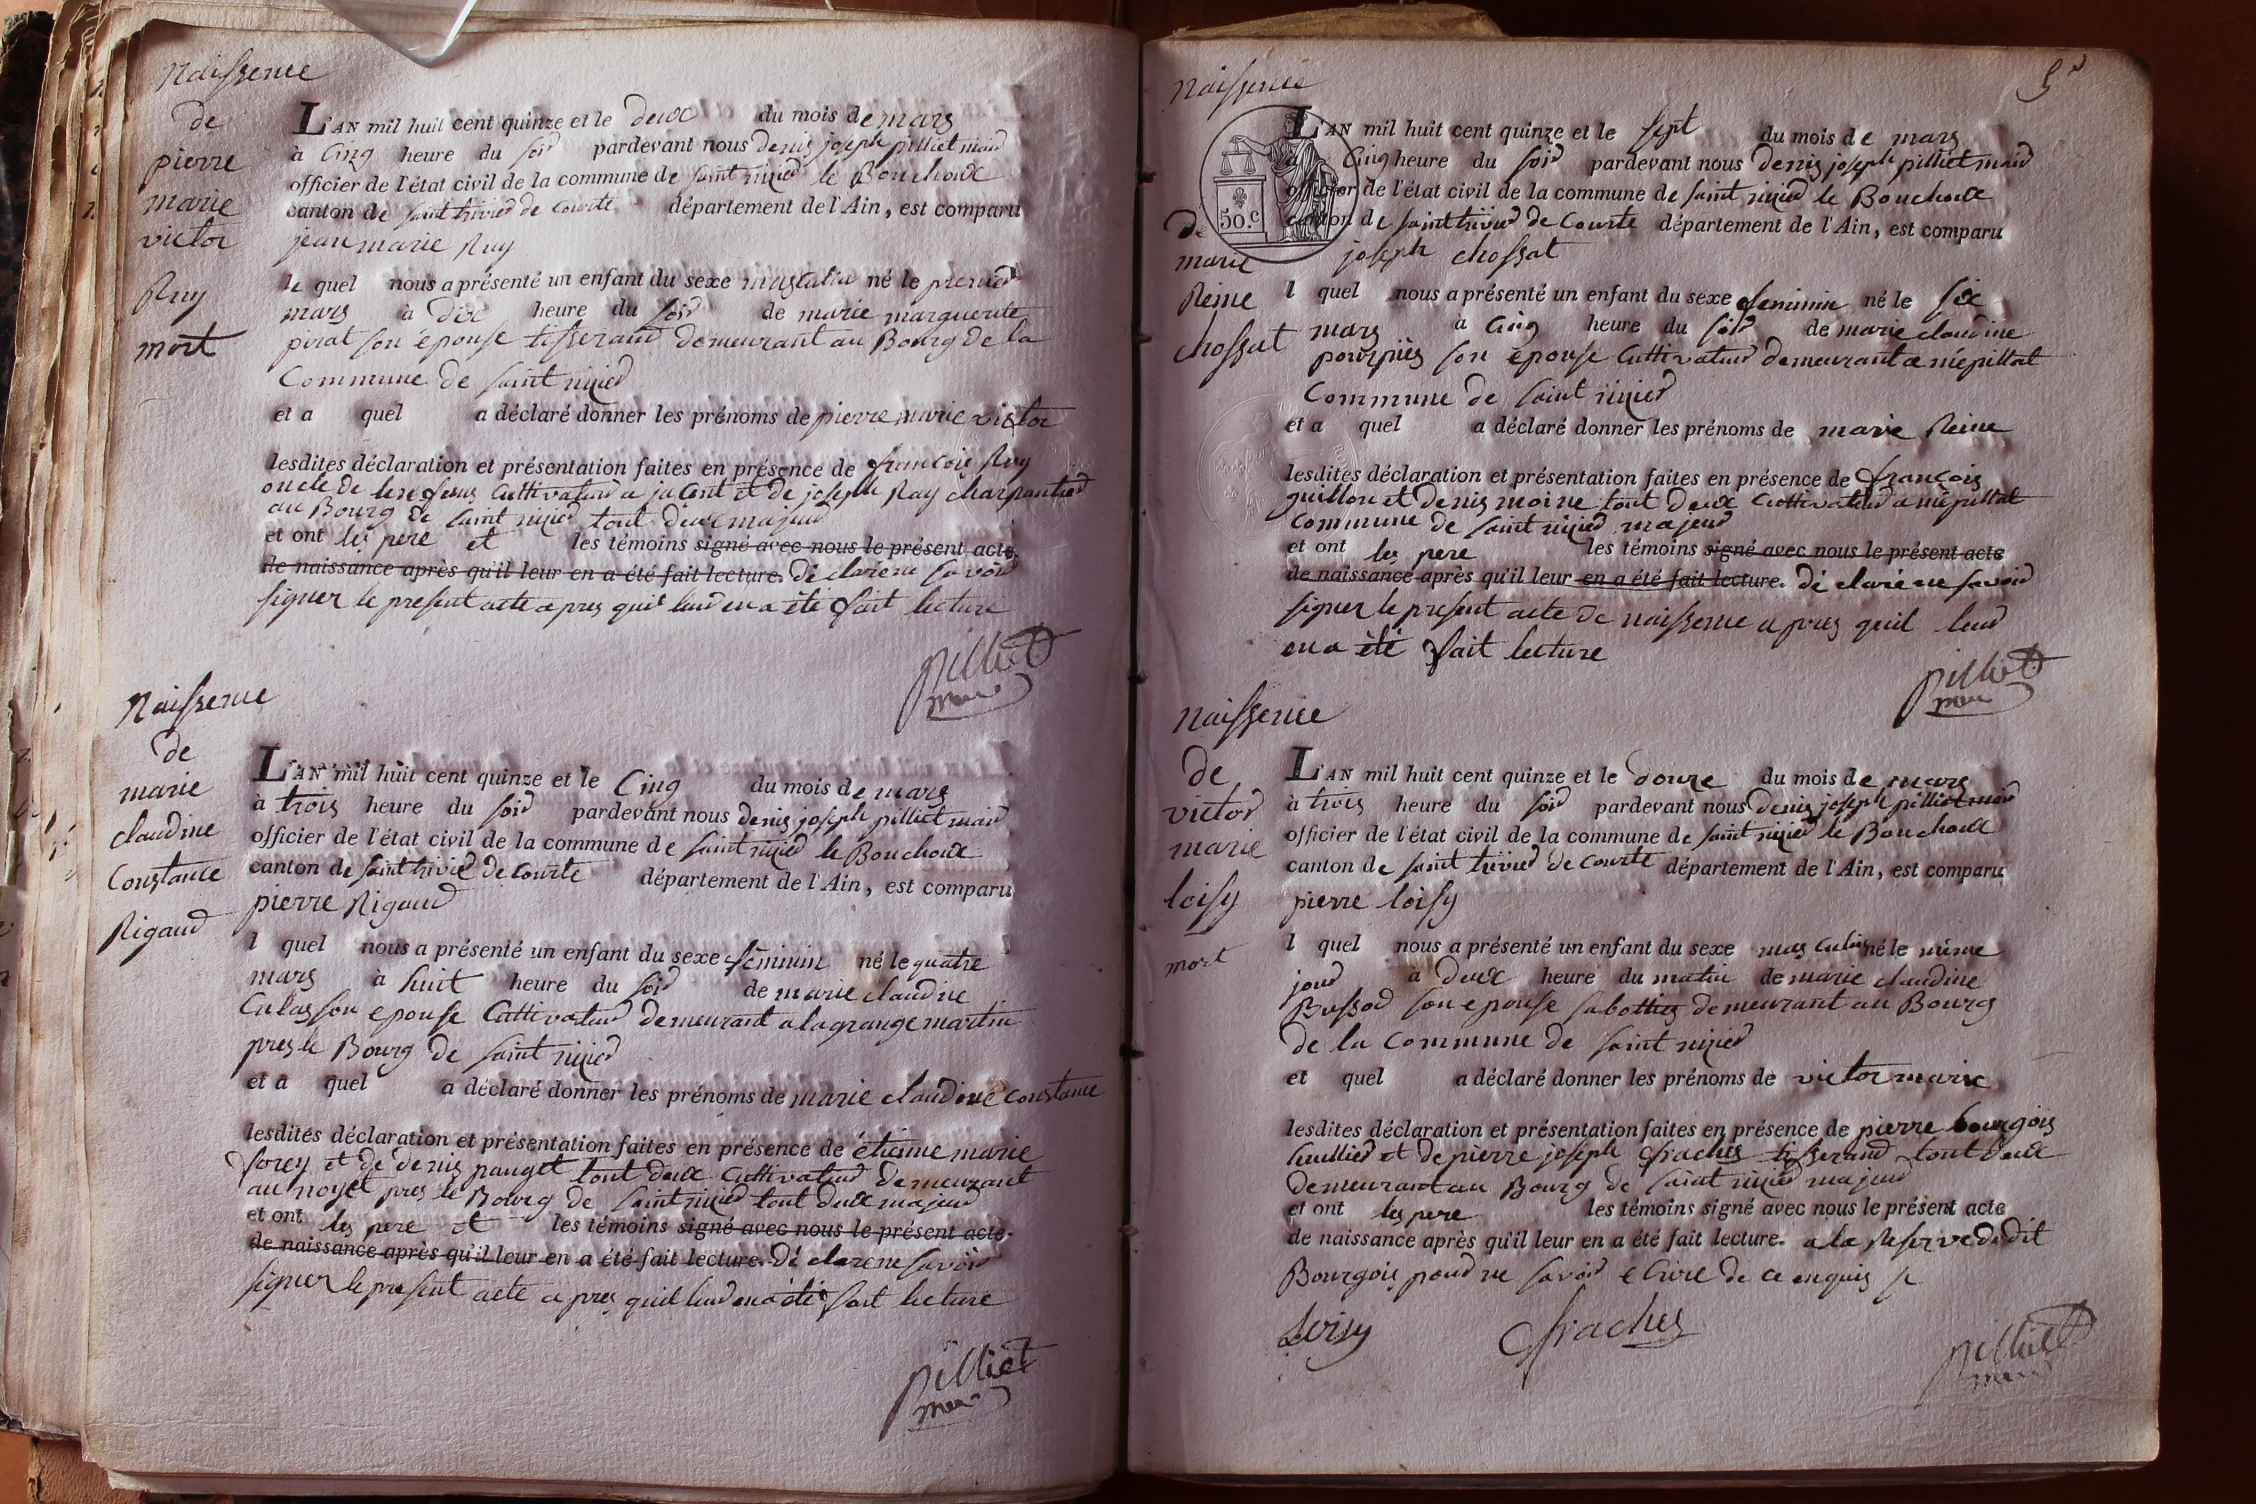 Naissence
de
pierre
marie
victor
Ruy
mort
L'AN mil huit cent quinze et le deux du mois de mars
à cinq heure du soir pardevant nous denis joseph pilliet mair
officier de l'état civil de la commune de saint nizier le Bouchoux
canton de saint trivier de Courte département de l'Ain, est comparu
jean marie Ruy
le quel nous a présenté un enfant du sexe masculin né le premier
mars à dix heure du soir de marie marguerite
pirat son épouse tisserand demeurant au Bourg de la
Commune de saint nizier
et a quel a déclaré donner les prénoms de pierre marie victor
lesdites déclaration et présentation faites en présence de francois Ruy
oncle de cultivateur a et de joseph Ray charpantier
au Bourg de saint nizier tout deux majeur
et ont les pere et les témoins signé avec nous le présent acte
de naissance après qu'il leur en a été fait lecture. dé clarene savoir
signer le present acte apres quil leur en a été fait lecture
pilliet
mair
Naissence
de
marie
claudine
Constance
Rigaud
L'AN mil huit cent quinze et le Cinq du mois de mars
à trois heure du soir pardevant nous denis joseph pilliet mair
officier de l'état civil de la commune de saint nizier le Bouchoux
canton de saint trivier de Courte département de l'Ain, est comparu
pierre Rigaud
l quel nous a présenté un enfant du sexe féminin né le quatre
mars à huit heure du soir de marie claudine
Culas son epouse Cultivateur demeurant a lagrange martin
pres le Bourg de saint nizier
et a quel a déclaré donner les prénoms de marie claudine constance
lesdites déclaration et présentation faites en présence de étienne marie
forey et de denis pauget tout deux cultivateur demeurant
au noyet pres le Bourg de saint nizier tout deux majeur
et ont les pere et les témoins signé avec nous le présent acte
de naissance après qu'il leur en a été fait lecture. dé clarene savoir
signer le present acte a pres quil leur en a été fait lecture
pilliet
mair
5
Naissence
de
marie
Reine
chossat
50.c
L'AN mil huit cent quinze et le sept du mois de mars
à Cinq heure du soir pardevant nous denis joseph pilliet mair
officier de l'état civil de la commune de saint nizier le Bouchoux
canton de saint trivier de Courte département de l'Ain, est comparu
joseph chossat
l quel nous a présenté un enfant du sexe feminin né le six
mars à cinq heure du soir de marie claudine
pourpiés son épouse Cultivateur demeurant a mépillat
Commune de saint nizier
et a quel a déclaré donner les prénoms de marie Reine
lesdites déclaration et présentation faites en présence de françois
guillon et denis moine tout deux Cultivateur a mépillat
commune de saint nizier majeur
et ont les pere les témoins signé avec nous le présent acte
de naissance après qu'il leur en a été fait lecture. dé clarene savoir
signer le present acte de naissence apres quil leur
en a été fait lecture
pilliet
mair
Naissence
de
victor
marie
loisy
mort
L'AN mil huit cent quinze et le douze du mois de mars
à trois heure du soir pardevant nous denis joseph pilliet mair
officier de l'état civil de la commune de saint nizier le Bouchoux
canton de saint trivier de Courte département de l'Ain, est comparu
pierre loisy
l quel nous a présenté un enfant du sexe masculin né le mème
jour à deux heure du matin de marie claudine
Bussod son epouse sabottier demeurant au Bourg
de la Commune de saint nizier
et quel a déclaré donner les prénoms de victor marie
lesdites déclaration et présentation faites en présence de pierre bourgois
tuillier et de pierre joseph fraches tisserand tout deux
demeurant au Bourg de saint nizier majeur
et ont les pere les témoins signé avec nous le présent acte
de naissance après qu'il leur en a été fait lecture. a la Reserve dudit
Bourgois pour ne savoir écrire de ce enquis
Loisy fraches pilliet
mair